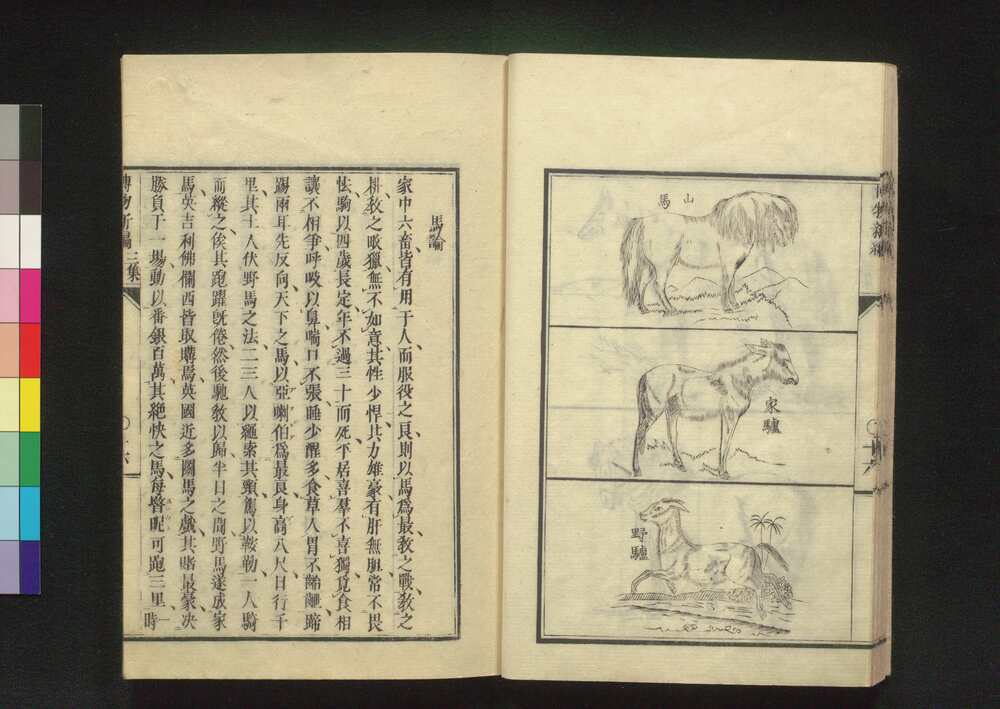 山馬
家驢
野驢
十六
馬論
家中六畜皆有用于人而服役之良則以馬爲最敎之戰敎之
耕敎之畋獵無不如意其性少悍其力雄豪有肝無胆常不畏
怯駒以四歲長定年不過三十而死平居喜羣不喜獨覓食相
讓不相爭呼吸以鼻喘口不張睡少醒多食草入胃不
蹄
踢兩耳先反向天下之馬以亞喇伯爲最良身高八尺日行千
里其土人伏野馬之法二三人以繩索其頸駕以鞍勒一人騎
而縱之俟其跑躍旣倦然後馳敎以歸半日之間野馬遂成家
馬英吉利佛蘭西皆取購焉英國近多鬬馬之戲其賭最豪决
勝負于一場動以番銀百萬其絶快之馬每
呢可跑三里一時
博物新編三集
十六